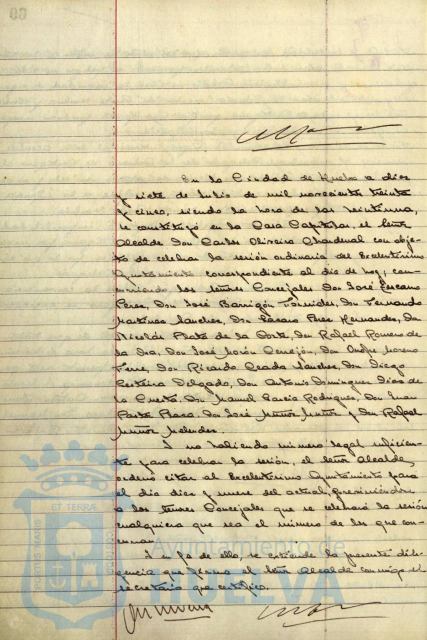 En la Ciudad de Huelva a diez
y siete de Julio de mil novecientos treinta
y cinco, siendo la hora de las veintiuna,
se constituyó en la Casa Capitular, el Señor
Alcalde Don Carlos Oliveira Chardenal con obje-
to de celebrar la sesión ordinaria del Excelentísimo
Ayuntamiento correspondiente al día de hoy, con-
curriendo los Señores Concejales Don José Lozano
Perez, Don José Barrigón Fornieles, Don Fernando
Martinez Sanchez, Don Lazaro Perez Hernandez, Don
Nicolás Prats de la Corte, Don Rafael Romero de
la Don José Morón Don Onofre Moreno
Don Ricardo Sanchez, Don Diego
Delgado, Don Antonio Dominguez Diaz de
la Cuesta, Don Manuel Garcia Rodriguez, Don Juan
Don José Muñoz Muñoz y Don Rafael
Muñoz Melendez.
Y no habiendo número legal suficien-
te para celebrar la sesión, el Señor Alcalde,
ordenó citar al Excelentísimo Ayuntamiento para
el día diez y nueve del actual, previniéndose
a los Señores Concejales que se celebrará la sesión
cualquiera que sea el número de los que con-
curran.
Y en fe de ello, se extiende la presente dili-
gencia que firma el Señor Alcalde conmigo el
Secretario que certifico.
Ayuntamiento de
HUELVA